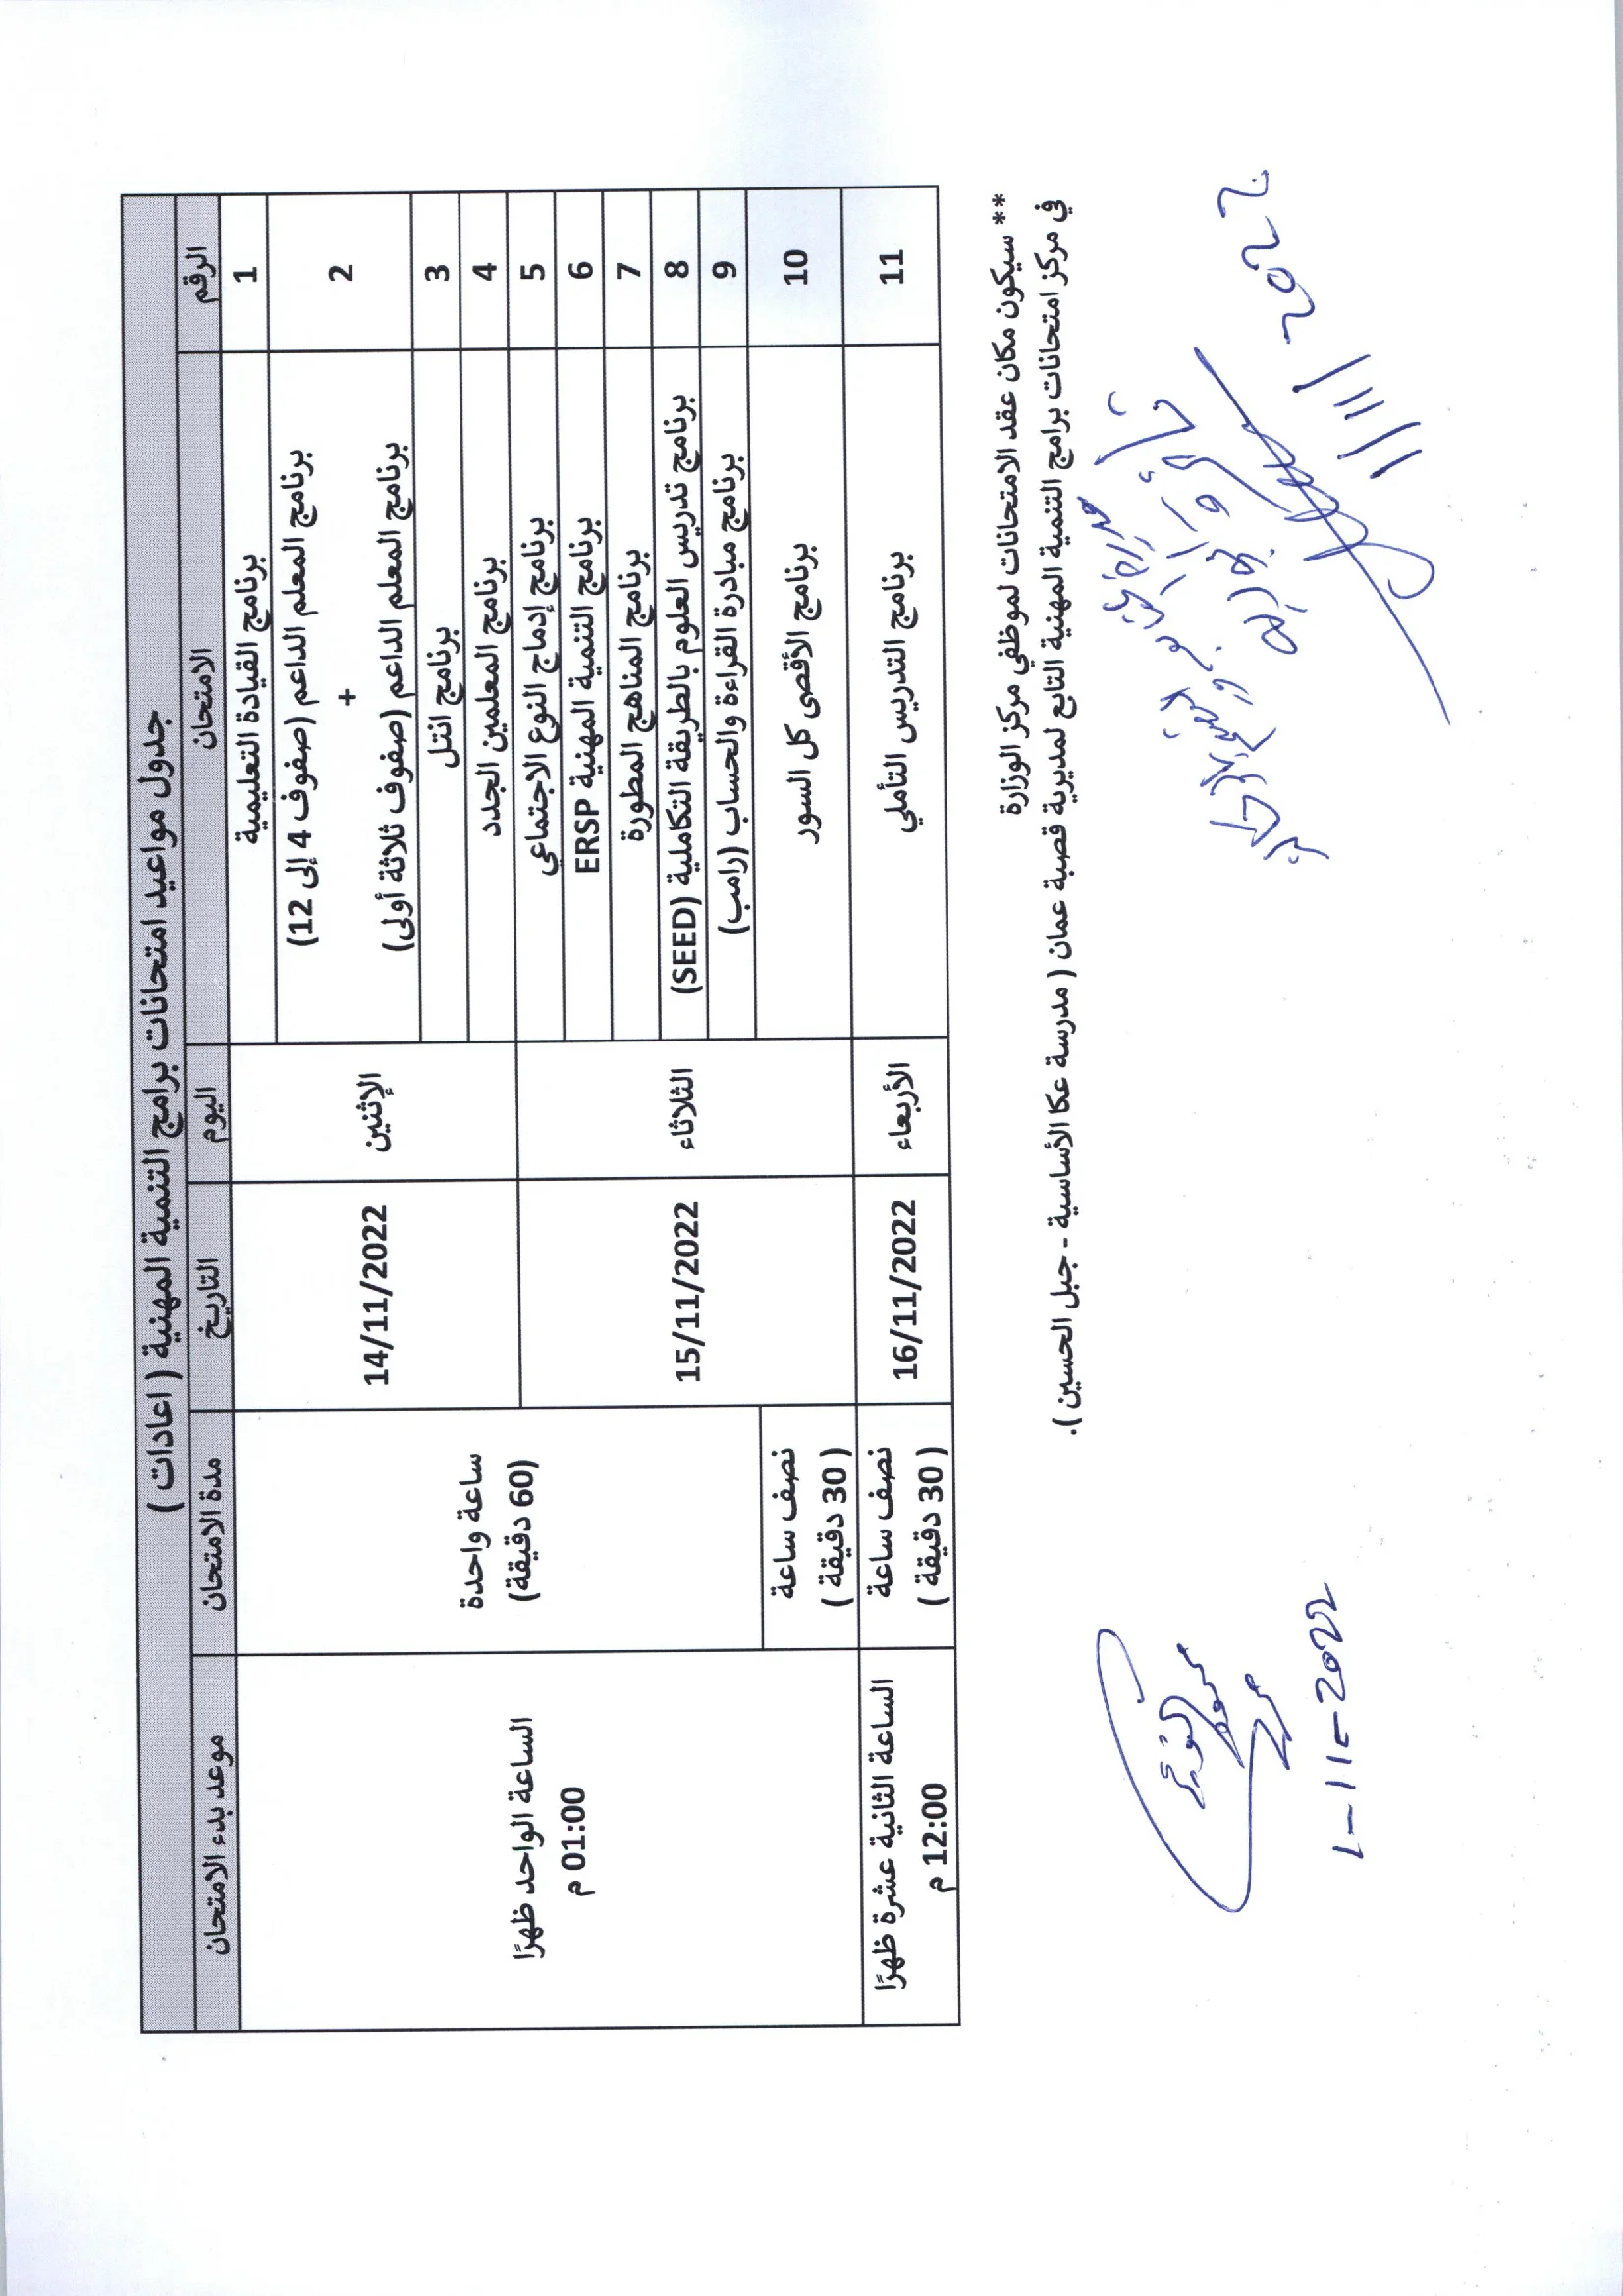 جدول مواعيد امتحانات برامج التنمية المهنية ( اعادات )
الرقم الامتحان اليوم التاريخ مدة الامتحان موعد بدء الامتحان
1 برنامج القيادة التعليمية الإثنين 14/11/2022 ساعة واحدة (60 دقيقة) الساعة الواحد ظهرًا 01:00 م
2 برنامج المعلم الداعم (صفوف 4 إلى 12)
+
برنامج المعلم الداعم (صفوف ثلاثة أولى)
3 برنامج انتل
4 برنامج المعلمين الجدد
5 برنامج إدماج النوع الاجتماعي الثلاثاء 15/11/2022
6 برنامج التنمية المهنية ERSP
7 برنامج المناهج المطورة
8 برنامج تدريس العلوم بالطريقة التكاملية (SEED)
9 برنامج مبادرة القراءة والحساب (رامب)
10 برنامج الأقصى كل السور نصف ساعة ( 30 دقيقة )
11 برنامج التدريس التأملي الأربعاء 16/11/2022 نصف ساعة ( 30 دقيقة ) الساعة الثانية عشرة ظهرًا 12:00 م
** سيكون مكان عقد الامتحانات لموظفي مركز الوزارة
في مركز امتحانات برامج التنمية المهنية التابع لمديرية قصبة عمان ( مدرسة عكا الأساسية - جبل الحسين ).
1/11/2022
1-11-2022